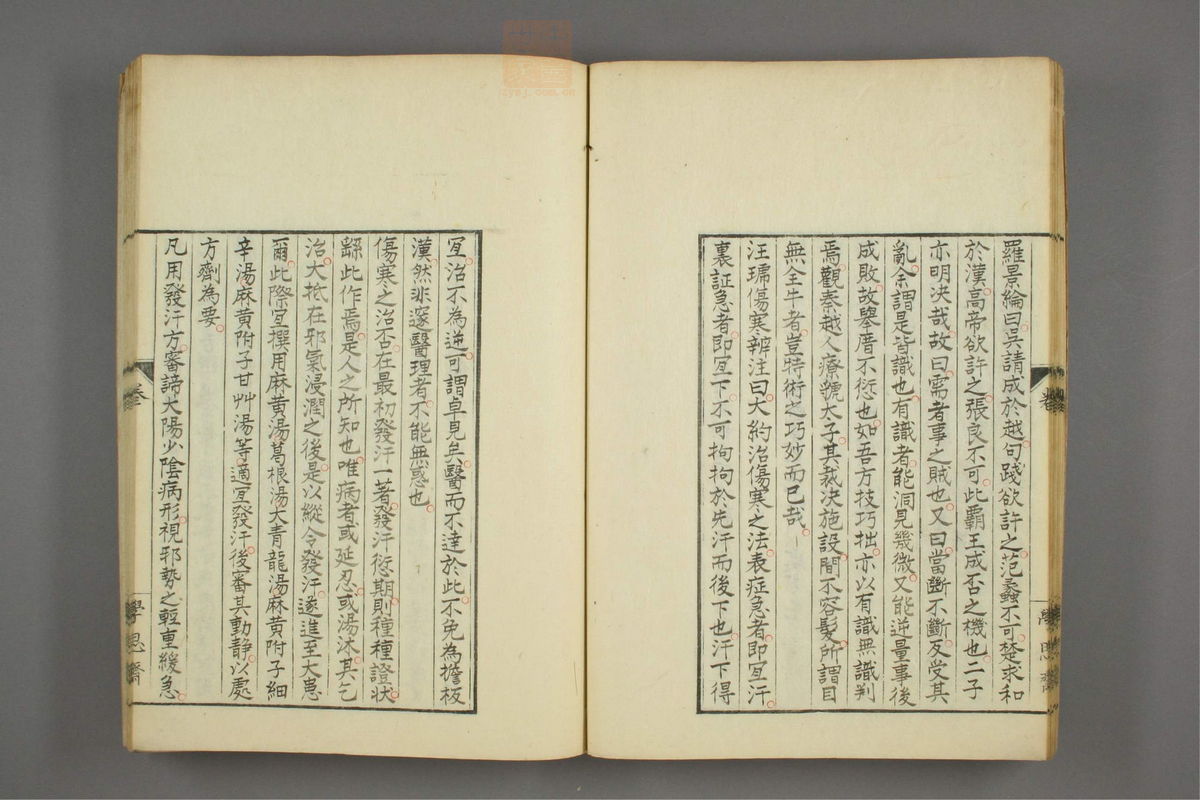 羅景綸曰吳請成於越句踐欲許之范蠡不可楚求和
於漢高帝欲許之張良不可此霸王成否之機也二子
亦明决哉故曰需者事之賊也又曰當斷不斷反受其
亂余謂是皆識也有識者能洞見幾微又能逆量事後
成敗故舉厝不愆也如吾方技巧拙亦以有識無識判
焉觀秦越人療虢太子其裁决施設間不容髮所謂目
無全牛者豈特術之巧妙而已哉
汪琥傷寒辨注曰大約治傷寒之法表症急者即宜汗
裏証急者即宜下不可拘拘於先汗而後下也汗下得
宜治不為逆可謂卓見矣醫而不達於此不免為擔板
漢然非邃醫理者不能無惑也
傷寒之治否在最初發汗一著發汗愆期則種種證狀
繇此作焉是人之所知也唯病者或延忍或湯沐其乞
治大抵在邪氣浸潤之後是以縱令發汗遂進至大患
爾此際宜撰用麻黄湯葛根湯大青龍湯麻黄附子細
辛湯麻黄附子甘艸湯等適宜發汗後審其動靜以處
方劑為要
凡用發汗方審諦大陽少陰病形視邪勢之輕重緩急
卷
學思齋
zysj.com.cn